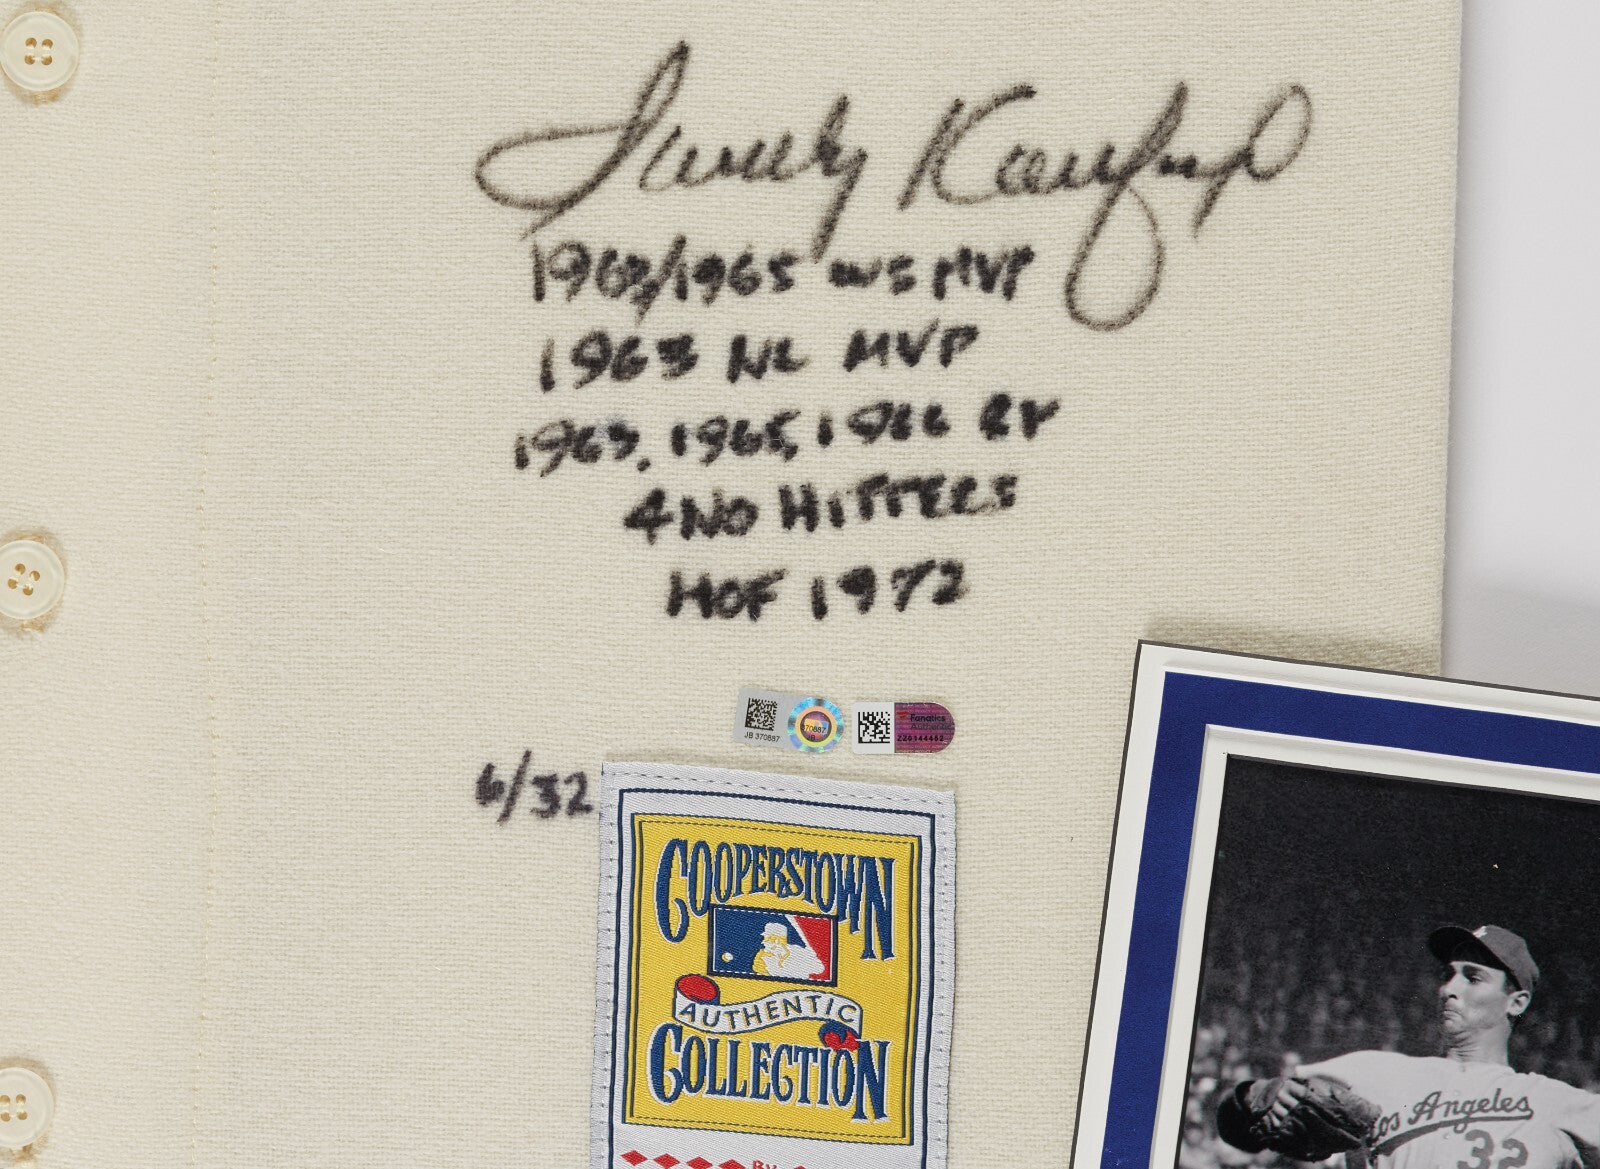 Sandy Koufax
1963/1965 WS MVP
1963 NL MVP
1963, 1965, 1966 CY
4 NO HITTERS
HOF 1972
JB 370887
370887
JB
Fanatics
Authentic
6/32
COOPERSTOWN
AUTHENTIC
COLLECTION
BY
Los Angeles
32